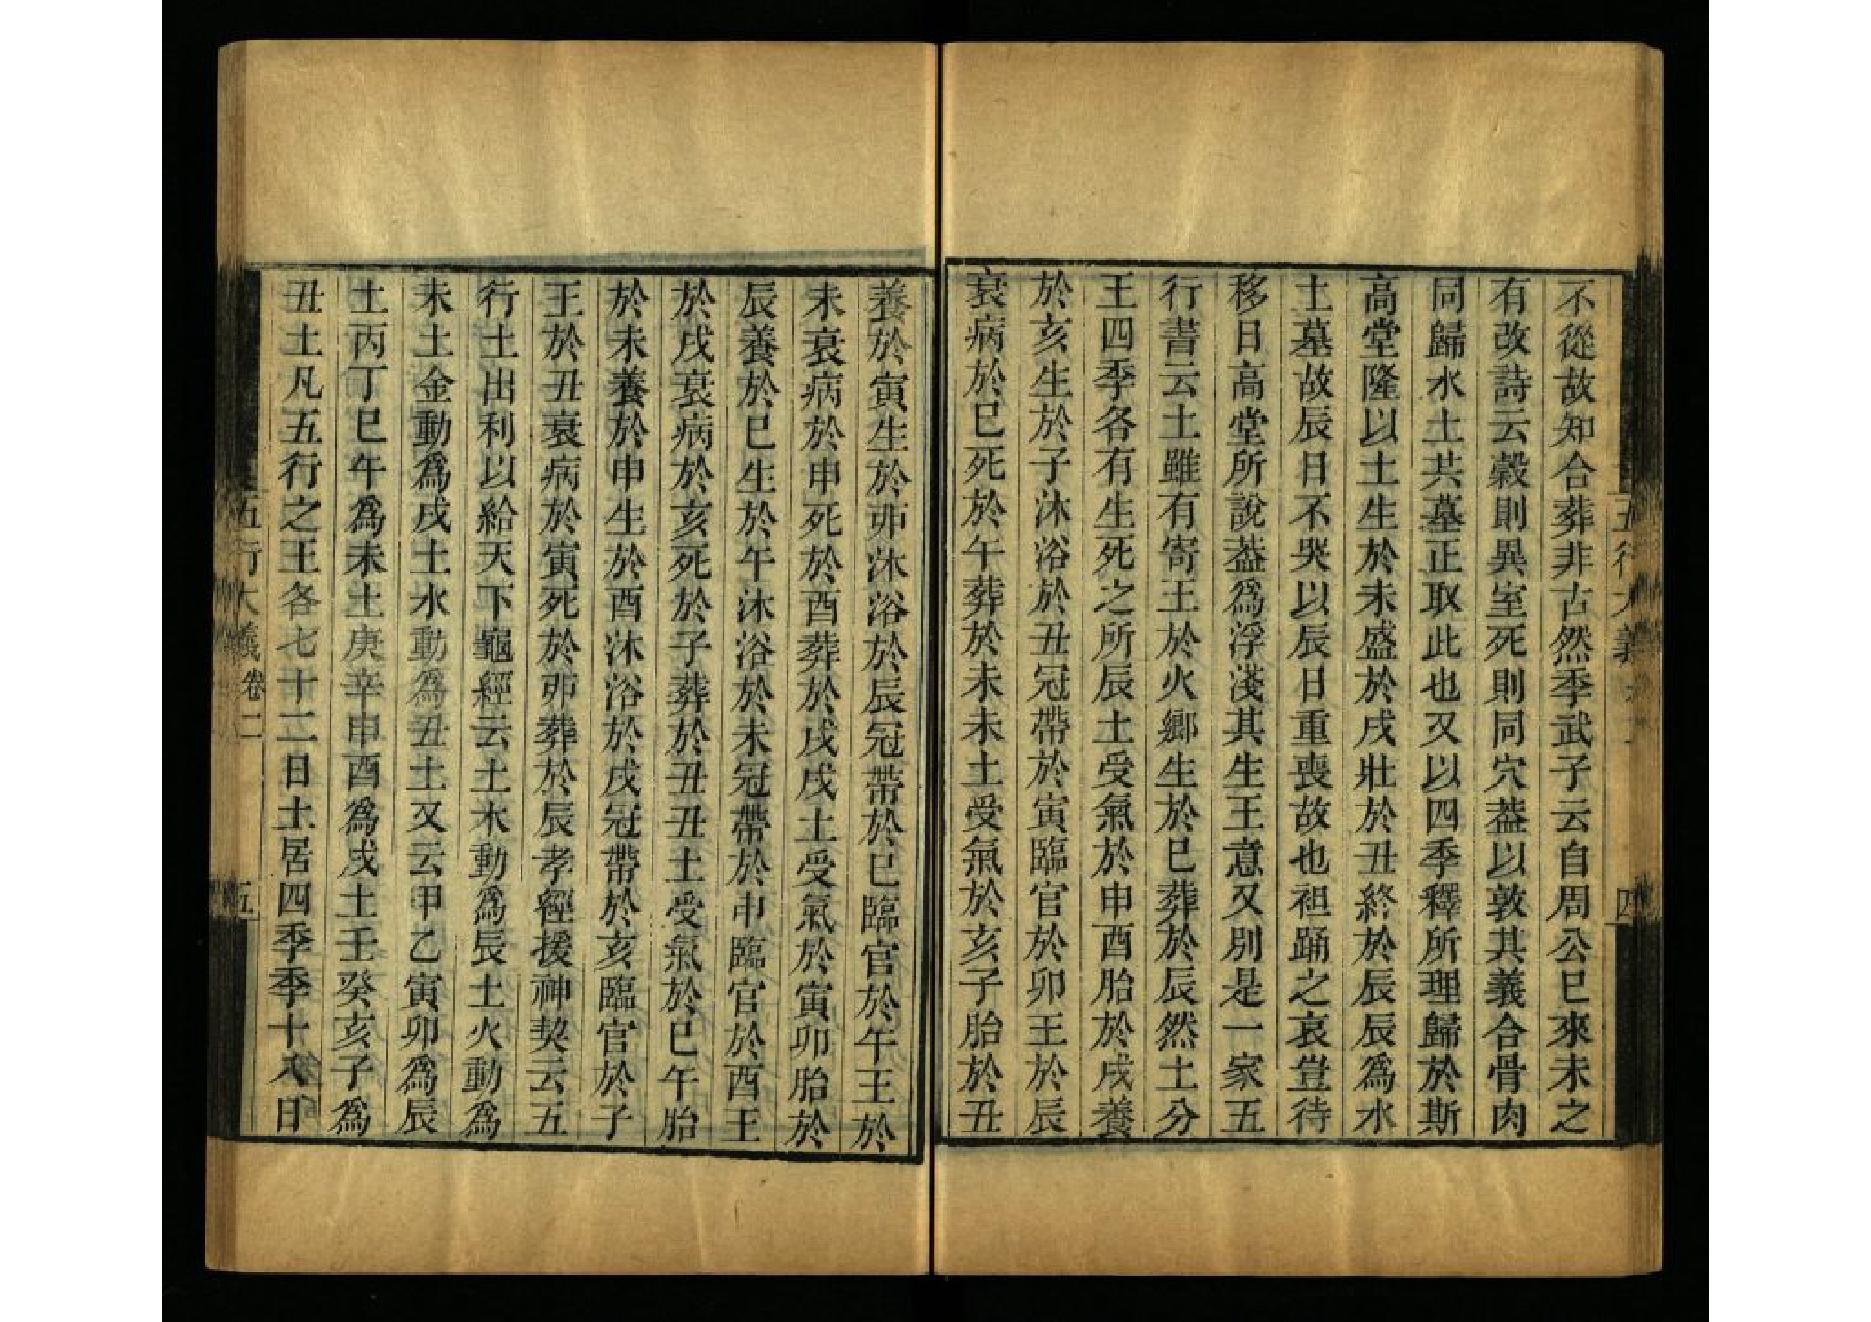 不從故知合葬非古然季武子云自周公已來未之
有改詩云穀則異室死則同穴葢以敦其義合骨肉
同歸水土共墓正取此也又以四季釋所理歸於斯
高堂隆以土生於未盛於戌壯於丑終於辰辰爲水
土墓故辰日不哭以辰日重喪故也袒踊之哀豈待
移日高堂所說葢爲浮淺其生王意又别是一家五
行書云土雖有寄王於火鄉生於巳葬於辰然土分
王四季各有生死之所辰土受氣於申酉胎於戌養
於亥生於子沐浴於丑冠帶於寅臨官於卯王於辰
衰病於巳死於午葬於未未土受氣於亥子胎於丑
養於寅生於夘沐浴於辰冠帶於巳臨官於午王於
未衰病於申死於酉葬於戌戌土受氣於寅卯胎於
辰養於巳生於午沐浴於未冠帶於申臨官於酉王
於戌衰病於亥死於子葬於丑丑土受氣於巳午胎
於未養於申生於酉沐浴於戌冠帶於亥臨官於子
王於丑衰病於寅死於夘葬於辰孝經援神契云五
行土出利以給天下龜經云土木動爲辰土火動爲
未土金動爲戌土水動爲丑土又云甲乙寅卯爲辰
土丙丁巳午爲未土庚辛申酉爲戌土壬癸亥子爲
丑土凡五行之王各七十二日土居四季季十八日
五行大義卷二
五